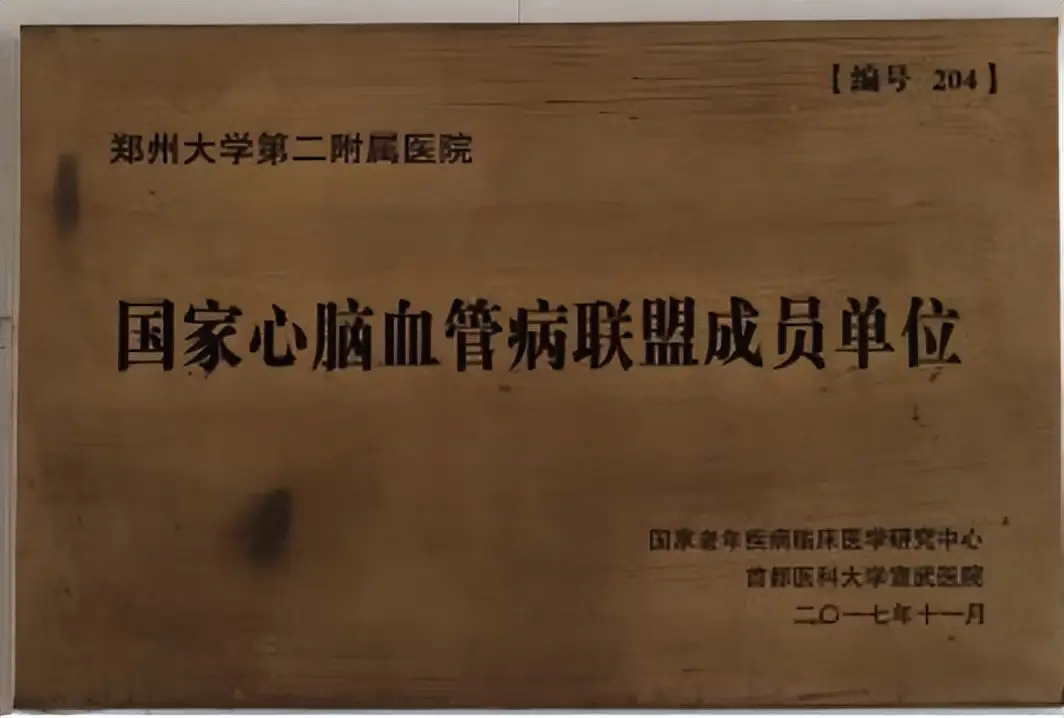 【编号 204】
郑州大学第二附属医院
国家心脑血管病联盟成员单位
国家老年疾病临床医学研究中心
首都医科大学宣武医院
二〇一七年十一月